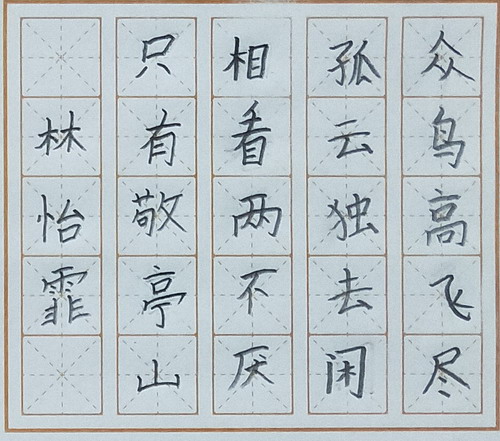 众鸟高飞尽
孤云独去闲
相看两不厌
只有敬亭山
林怡霏